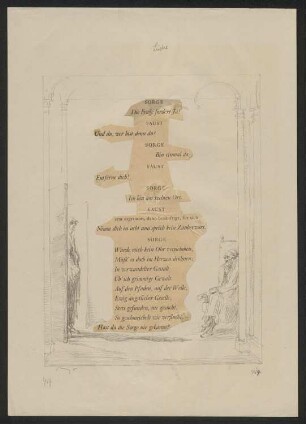 SORGE
Die Frage fordert Ja!
FAUST
Und du, wer bist denn du?
SORGE
Bin einmal da.
FAUST
Entferne dich!
SORGE
Ich bin am rechten Ort.
FAUST
Nimm dich in acht und sprich kein Zauberwort.
SORGE
Würde mich kein Ohr vernehmen,
Müßt' es doch im Herzen dröhnen;
In verwandelter Gestalt
Üb' ich grimmige Gewalt.
Auf den Pfaden, auf der Welle,
Ewig ängstlicher Geselle,
Stets gefunden, nie gesucht,
So geschmeichelt wie verflucht.
Hast du die Sorge nie gekannt?